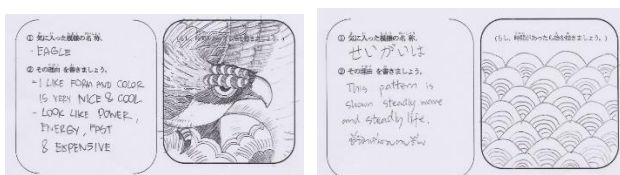 ① 気に入った模様の名称。
- EAGLE
② その理由 を書きましょう。
- I LIKE FORM AND COLOR
IS VERY NICE & COOL
- LOOK LIKE POWER,
ENERGY, FAST
& EXPENSIVE
(もし、時間があったら絵を描きましょう。)
① 気に入った模様の名称。
せいがいは
② その理由 を書きましょう。
This pattern is
shown steadly wave
and steadly life.
(もし、時間があったら絵を描きましょう。)